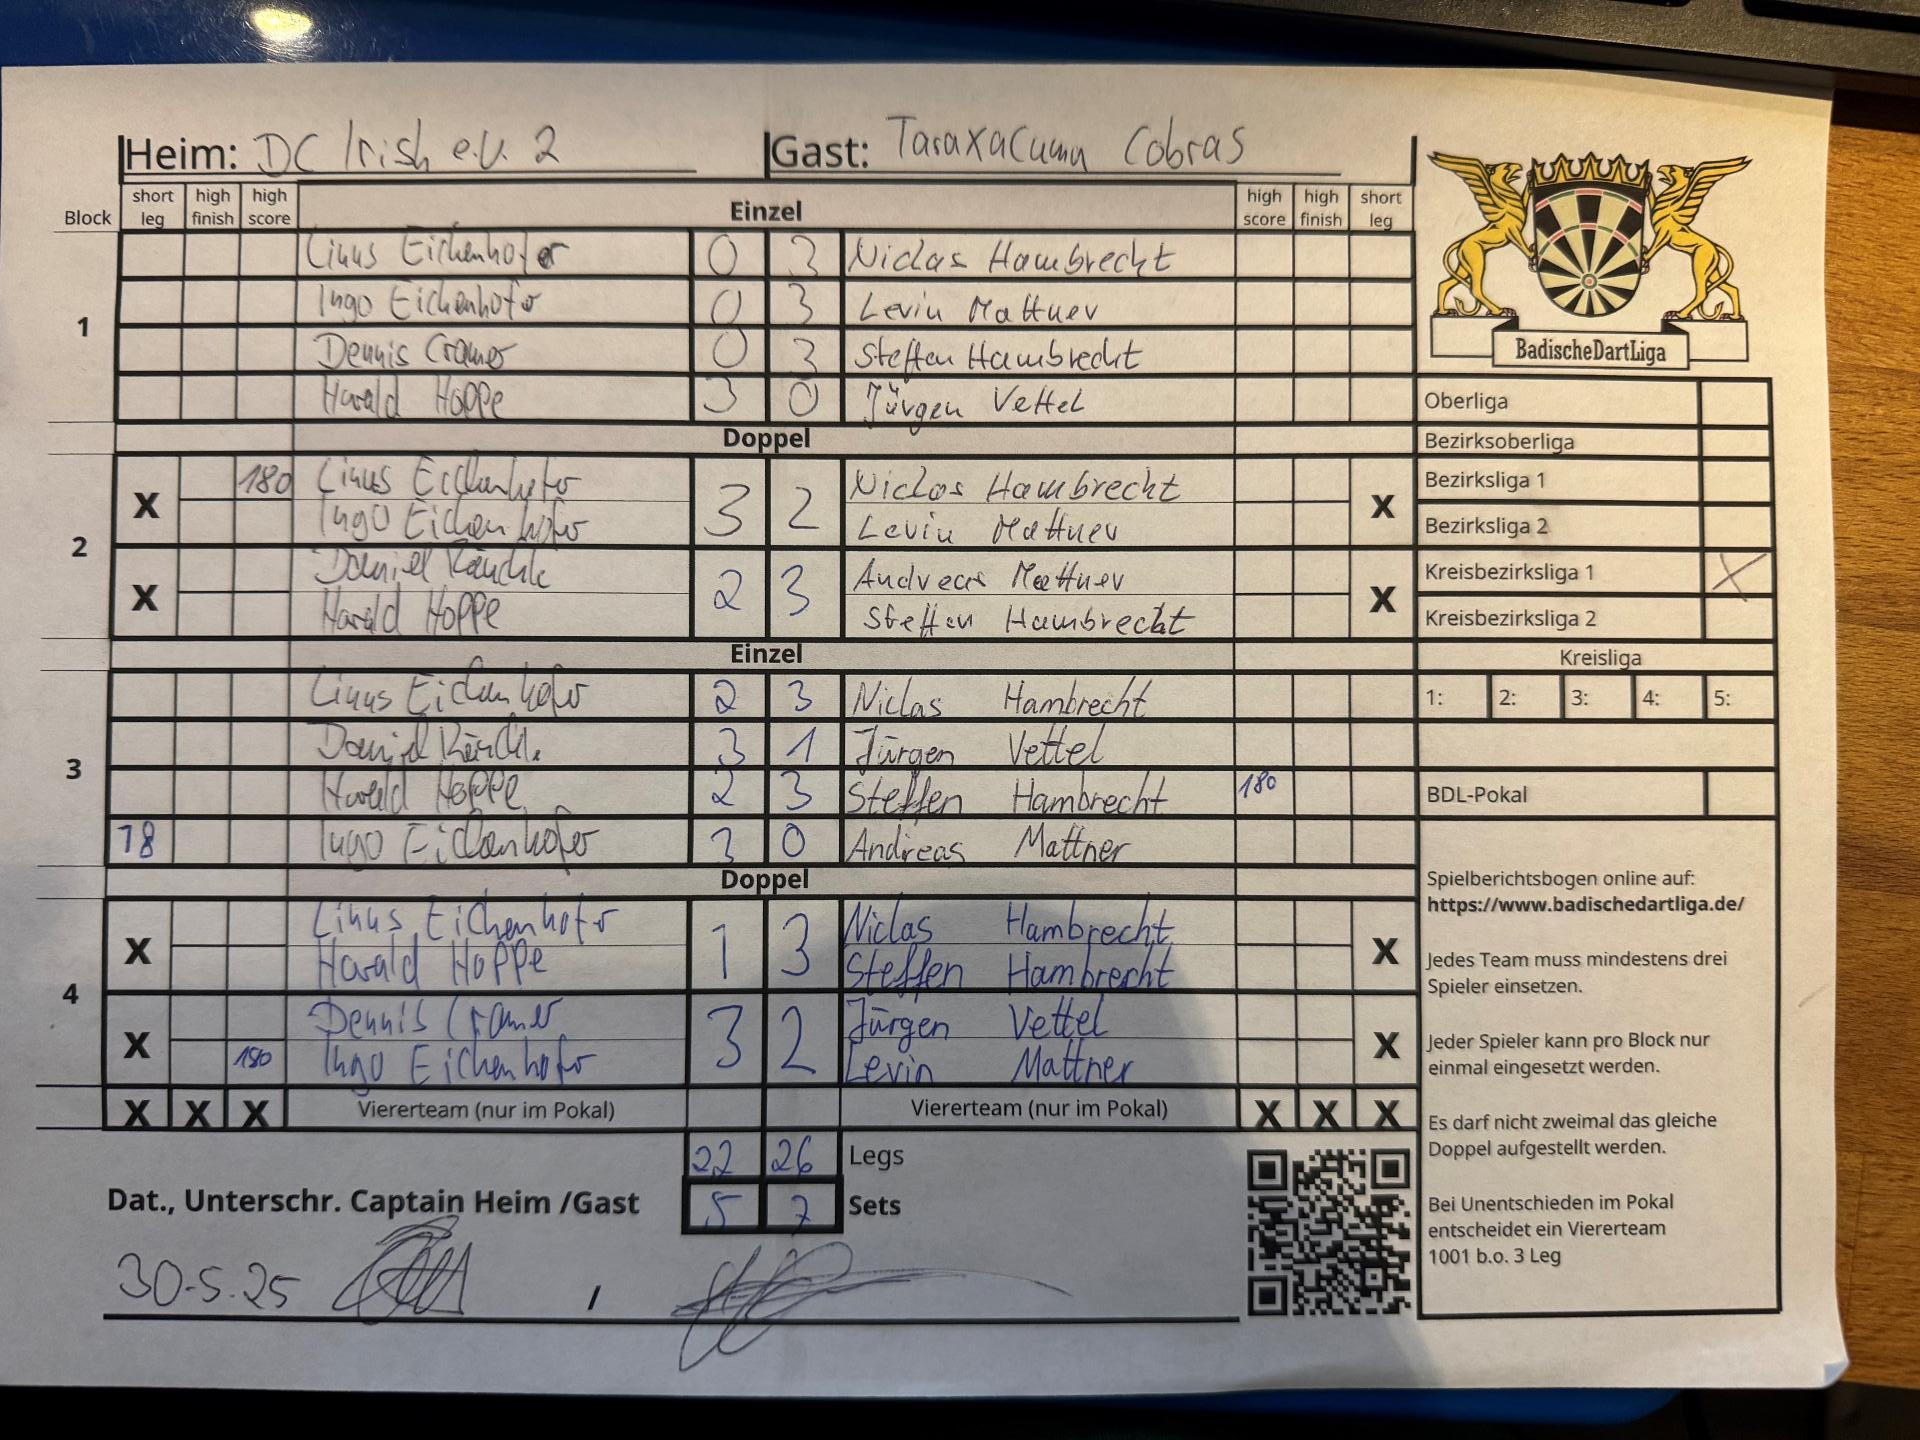 Heim: DC Irish e.V. 2 Gast: Taraxacuma Cobras
Block short leg high finish high score Einzel high score high finish short leg
1
Linus Eichenhofer 0 3 Niclas Hambrecht
Ingo Eichenhofer 0 3 Levin Mattner
Dennis Cramer 0 3 Steffen Hambrecht
Harald Hoppe 3 0 Jürgen Vettel
Doppel
2
X 180 Linus Eichenhofer 3 2 Niclas Hambrecht X
Ingo Eichenhofer Levin Mattner
X Daniel 2 3 Andreas Mattner X
Harald Hoppe Steffen Hambrecht
Einzel
3
Linus Eichenhofer 2 3 Niclas Hambrecht
Daniel 3 1 Jürgen Vettel
Harald Hoppe 2 3 Steffen Hambrecht 180
18 Ingo Eichenhofer 3 0 Andreas Mattner
Doppel
4
X Linus Eichenhofer 1 3 Niclas Hambrecht X
Harald Hoppe Steffen Hambrecht
X Dennis Cramer 3 2 Jürgen Vettel X
180 Ingo Eichenhofer Levin Mattner
X X X Viererteam (nur im Pokal) Viererteam (nur im Pokal) X X X
22 26 Legs
Dat., Unterschr. Captain Heim /Gast 5 7 Sets
30.5.25 /
BadischeDartLiga
Oberliga
Bezirksoberliga
Bezirksliga 1
Bezirksliga 2
Kreisbezirksliga 1 X
Kreisbezirksliga 2
Kreisliga
1: 2: 3: 4: 5:
BDL-Pokal
Spielberichtsbogen online auf:
https://www.badischedartliga.de/
Jedes Team muss mindestens drei
Spieler einsetzen.
Jeder Spieler kann pro Block nur
einmal eingesetzt werden.
Es darf nicht zweimal das gleiche
Doppel aufgestellt werden.
Bei Unentschieden im Pokal
entscheidet ein Viererteam
1001 b.o. 3 Leg